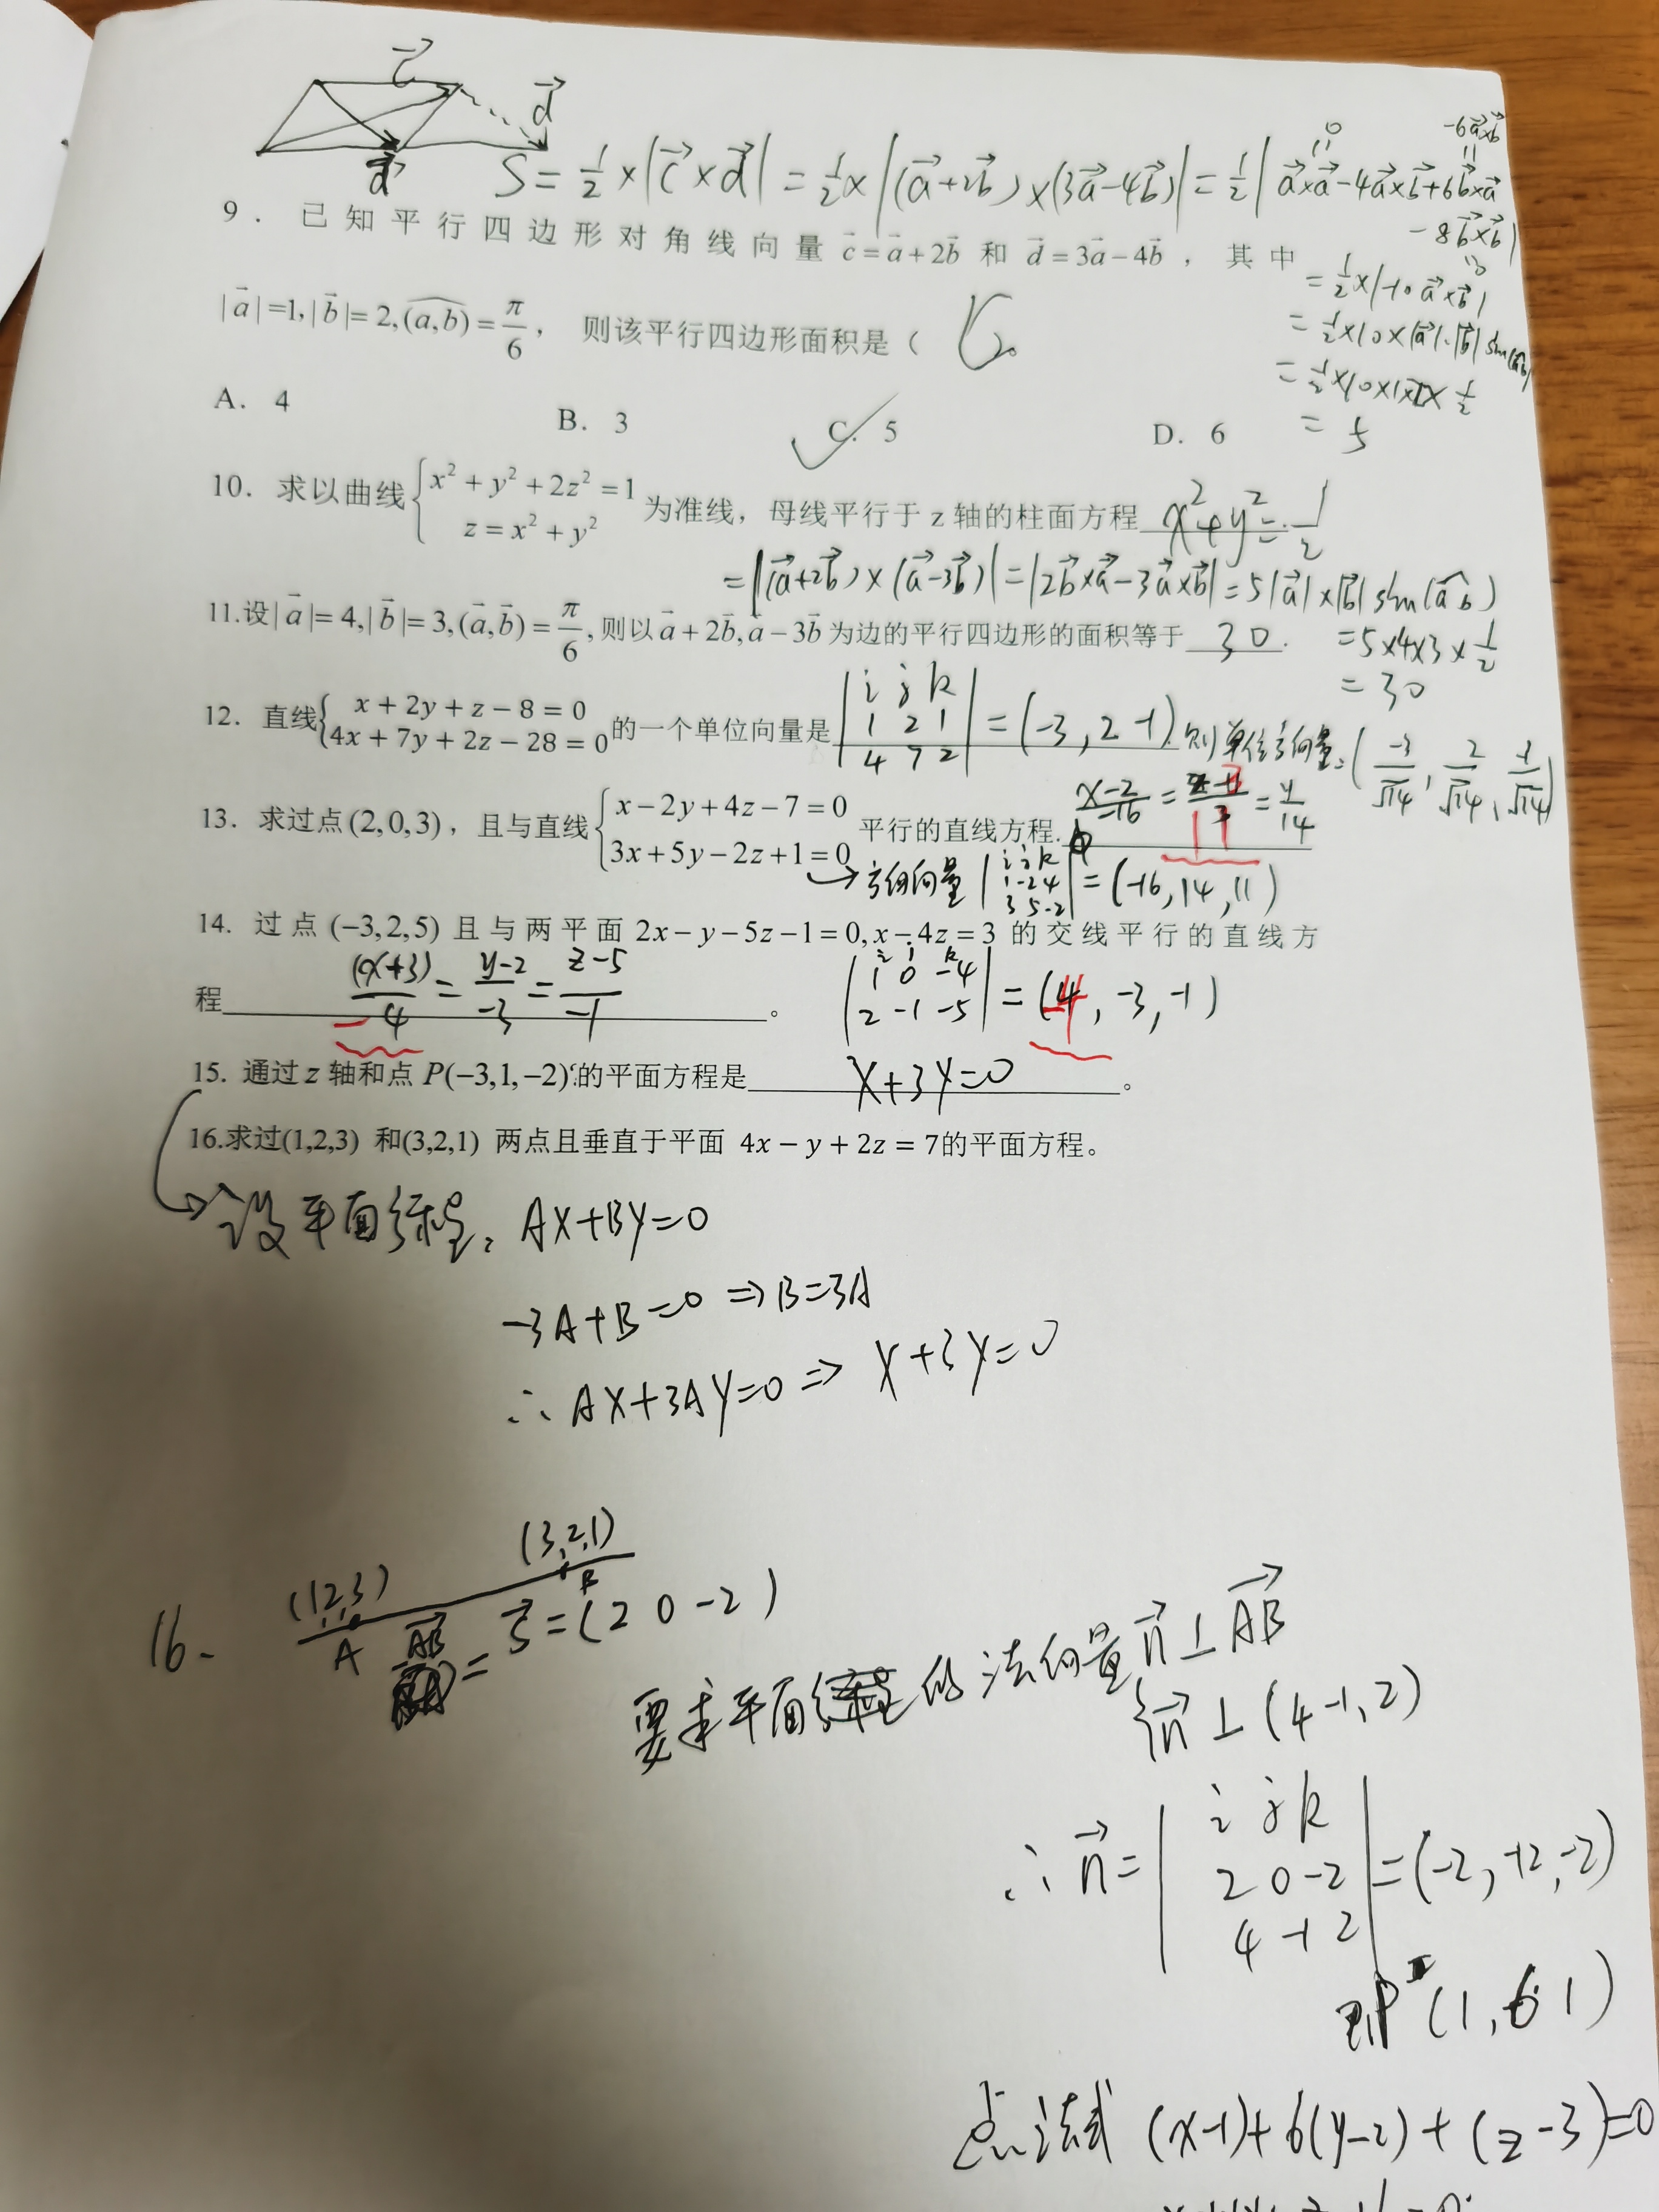 c⃗
d⃗
d⃗
S = 1/2 × |c⃗ × d⃗| = 1/2 × |(a⃗+2b⃗) × (3a⃗-4b⃗)| = 1/2 | a⃗×a⃗ - 4a⃗×b⃗ + 6b⃗×a⃗
0
-6a⃗×b⃗
- 8b⃗×b⃗ |
= 1/2 × |-10 a⃗×b⃗|
= 1/2 × 10 × |a⃗|·|b⃗| sin(ab)
= 1/2 × 10 × 1 × 2 × 1/2
= 5
9. 已知平行四边形对角线向量 c⃗ = a⃗ + 2b⃗ 和 d⃗ = 3a⃗ − 4b⃗ ，其中
|a⃗|=1, |b⃗|= 2, (a,b) = π/6， 则该平行四边形面积是（ C。
A. 4 B. 3 C. 5 D. 6
10. 求以曲线 { x² + y² + 2z² = 1
z = x² + y² 为准线，母线平行于 z 轴的柱面方程 x²+y²=1/2
=|(a⃗+2b⃗)×(a⃗-3b⃗)|=|2b⃗×a⃗-3a⃗×b⃗|=5|a⃗|×|b⃗| sin(a b)
11.设|a⃗|= 4,|b⃗|= 3,(a⃗,b⃗) = π/6, 则以 a⃗ + 2b⃗, a⃗ − 3b⃗ 为边的平行四边形的面积等于 30.
=5×4×3×1/2
= 30
12. 直线 { x + 2y + z − 8 = 0
4x + 7y + 2z − 28 = 0 的一个单位向量是 | i j k
1 2 1
4 7 2 | = (-3, 2 -1) 则单位方向量: (-3/√14, 2/√14, -1/√14)
13. 求过点(2,0,3)，且与直线 { x − 2y + 4z − 7 = 0
3x + 5y − 2z + 1 = 0 平行的直线方程. (x-2)/-16 = (z-3)/11 = y/14
方向向量 | i j k
1 -2 4
3 5 -2 | = (-16, 14, 11)
14. 过点 (−3,2,5) 且与两平面 2x − y − 5z − 1 = 0, x − 4z = 3 的交线平行的直线方
程 (x+3)/-4 = (y-2)/-3 = (z-5)/-1 。
| i j k
1 0 -4
2 -1 -5 | = (-4, -3, -1)
15. 通过 z 轴和点 P(−3,1,−2) 的平面方程是 X+3Y=0 。
16.求过(1,2,3) 和(3,2,1) 两点且垂直于平面 4x − y + 2z = 7的平面方程。
设平面方程: AX+BY=0
-3A+B=0 ⇒ B=3A
∴ AX+3AY=0 ⇒ X+3Y=0
16.
(1,2,3)
(3,2,1)
A
B
AB⃗ = s⃗ = (2 0 -2)
要求平面的法向量 n⃗ ⊥ AB⃗
n⃗ ⊥ (4 -1, 2)
∴ n⃗ = | i j k
2 0 -2
4 -1 2 | = (-2, -12, -2)
即 (1, 6 1)
点法式 (x-1)+6(y-2)+(z-3)=0